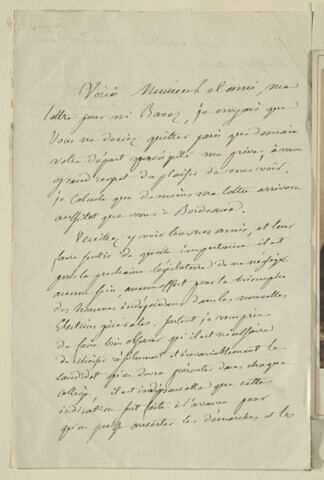 Voici Monsieur et ami, ma
lettre pour mr Ravez, je croyais que
Vous ne deviez quitter paris que demain
votre départ précipité me prive, à mon
grand regret du plaisir de vous voir.
je calcule que demain ma lettre arrivera
aussitot que vous à Bordeaux.
Veuillez y voir tous nos amis, et leur
faire sentir de quelle importance il est
pour la prochaine législature de ne négliger
aucun soin, aucun effort pour le triomphe
des hommes indépendans dans les nouvelles
Elections générales. surtout je vous prie
de faire bien observer qu'il est nécessaire
de choisir résolument et invariablement le
candidat qu'on devra présenter dans chaque
collège, il est indispensable que cette
indication soit faite à l'avance pour
qu'on puisse concerter les démarches et les